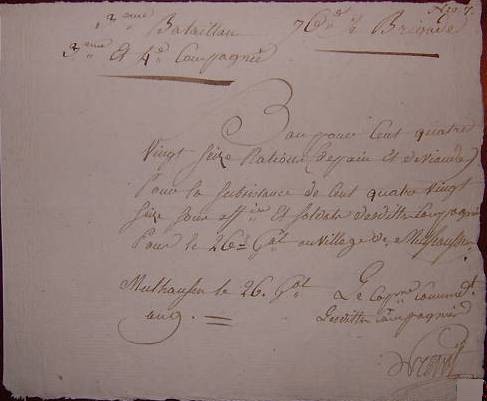 Nro. 7.
3eme Bataillon 76de ½ Brigade
3eme Et 4e Compagnie
Bon pour Cent quatre
Vingt Seize Rations (de pain Et de Viande)
Pour la Subsistance de Cent quatre Vingt
Seize Sous off iers Et Soldats desdittes Compagnies
Pour le 26e au Village de Mulhausen
Mulhausen le 26. Le Capne Commdt
an 9. Lesdittes Compagnies